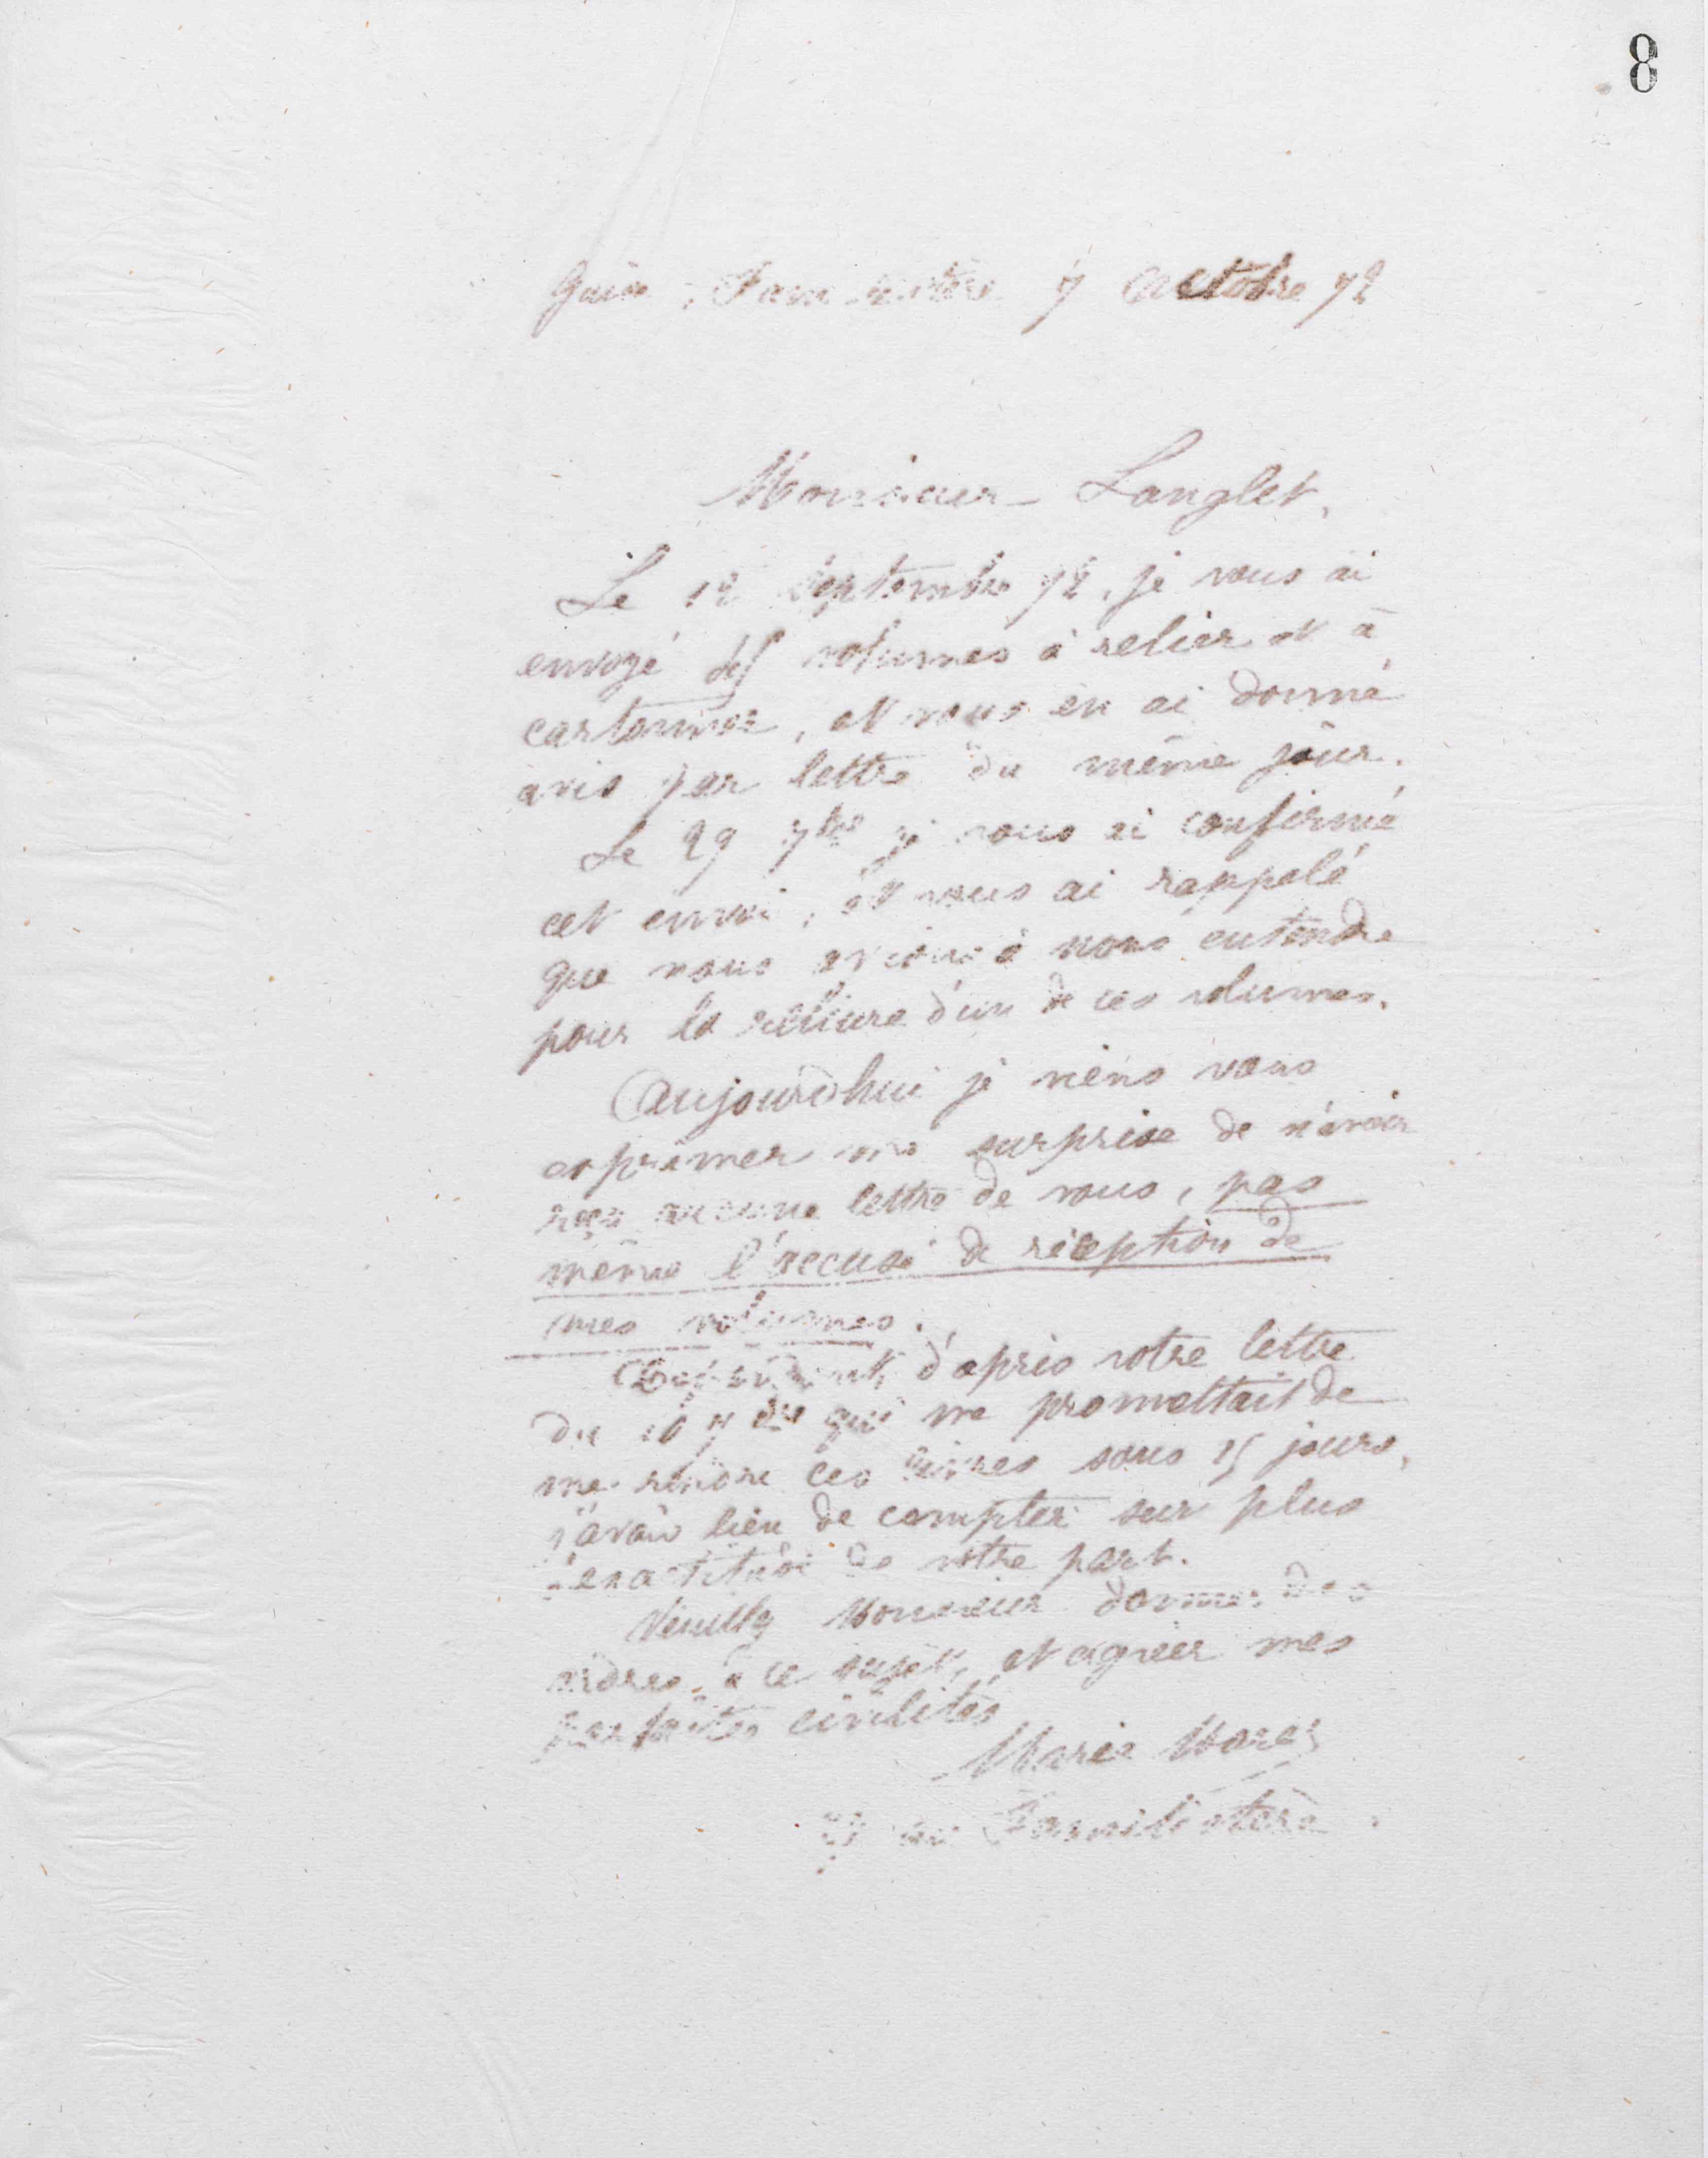 8
Guise, Familistère 7 Octobre 72
Monsieur Langlet,
Le 12 Septembre 72, je vous ai
envoyé volumes à relier et à
cartonner, et vous en ai donné
avis par lettre du même jour.
Le 29 7bre je vous ai confirmé
cet envoi, et vous ai rappelé
que nous avions à nous entendre
pour la reliure d'un de ces volumes.
Aujourd'hui je viens vous
exprimer ma surprise de n'avoir
reçu aucune lettre de vous, pas
même l'accusé de réception de
mes volumes.
Cependant, d'après votre lettre
du 10 7bre qui me promettait de
me rendre ces livres sous 15 jours,
j'avais lieu de compter sur plus
d'exactitude de votre part.
Veuillez Monsieur donner des
ordres à ce sujet, et agréer mes
parfaites civilités
Marie Moret
au Familistère.